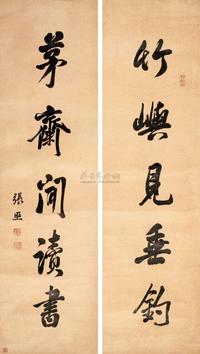 竹嶼見垂釣
茅齋聞讀書
張照